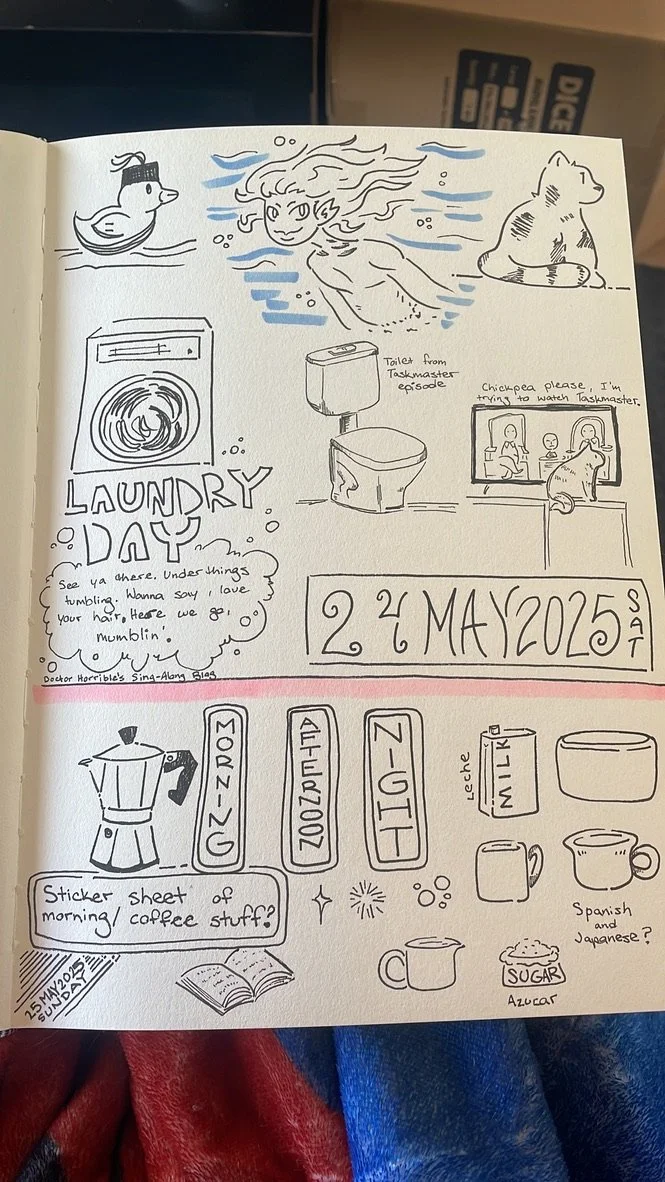 DICE
Toilet from
Taskmaster
episode
Chickpea please, I'm
trying to watch Taskmaster.
LAUNDRY
DAY
See ya there. Under things
tumbling. Wanna say, love
your hair, Here we go,
mumblin'.
Doctor Horrible's Sing-Along Blog
24 MAY 2025
SAT
MORNING
AFTERNOON
NIGHT
Leche
MILK
Sticker sheet of
morning/ coffee stuff?
Spanish
and
Japanese?
25 MAY 2025
SUNDAY
SUGAR
Azucar